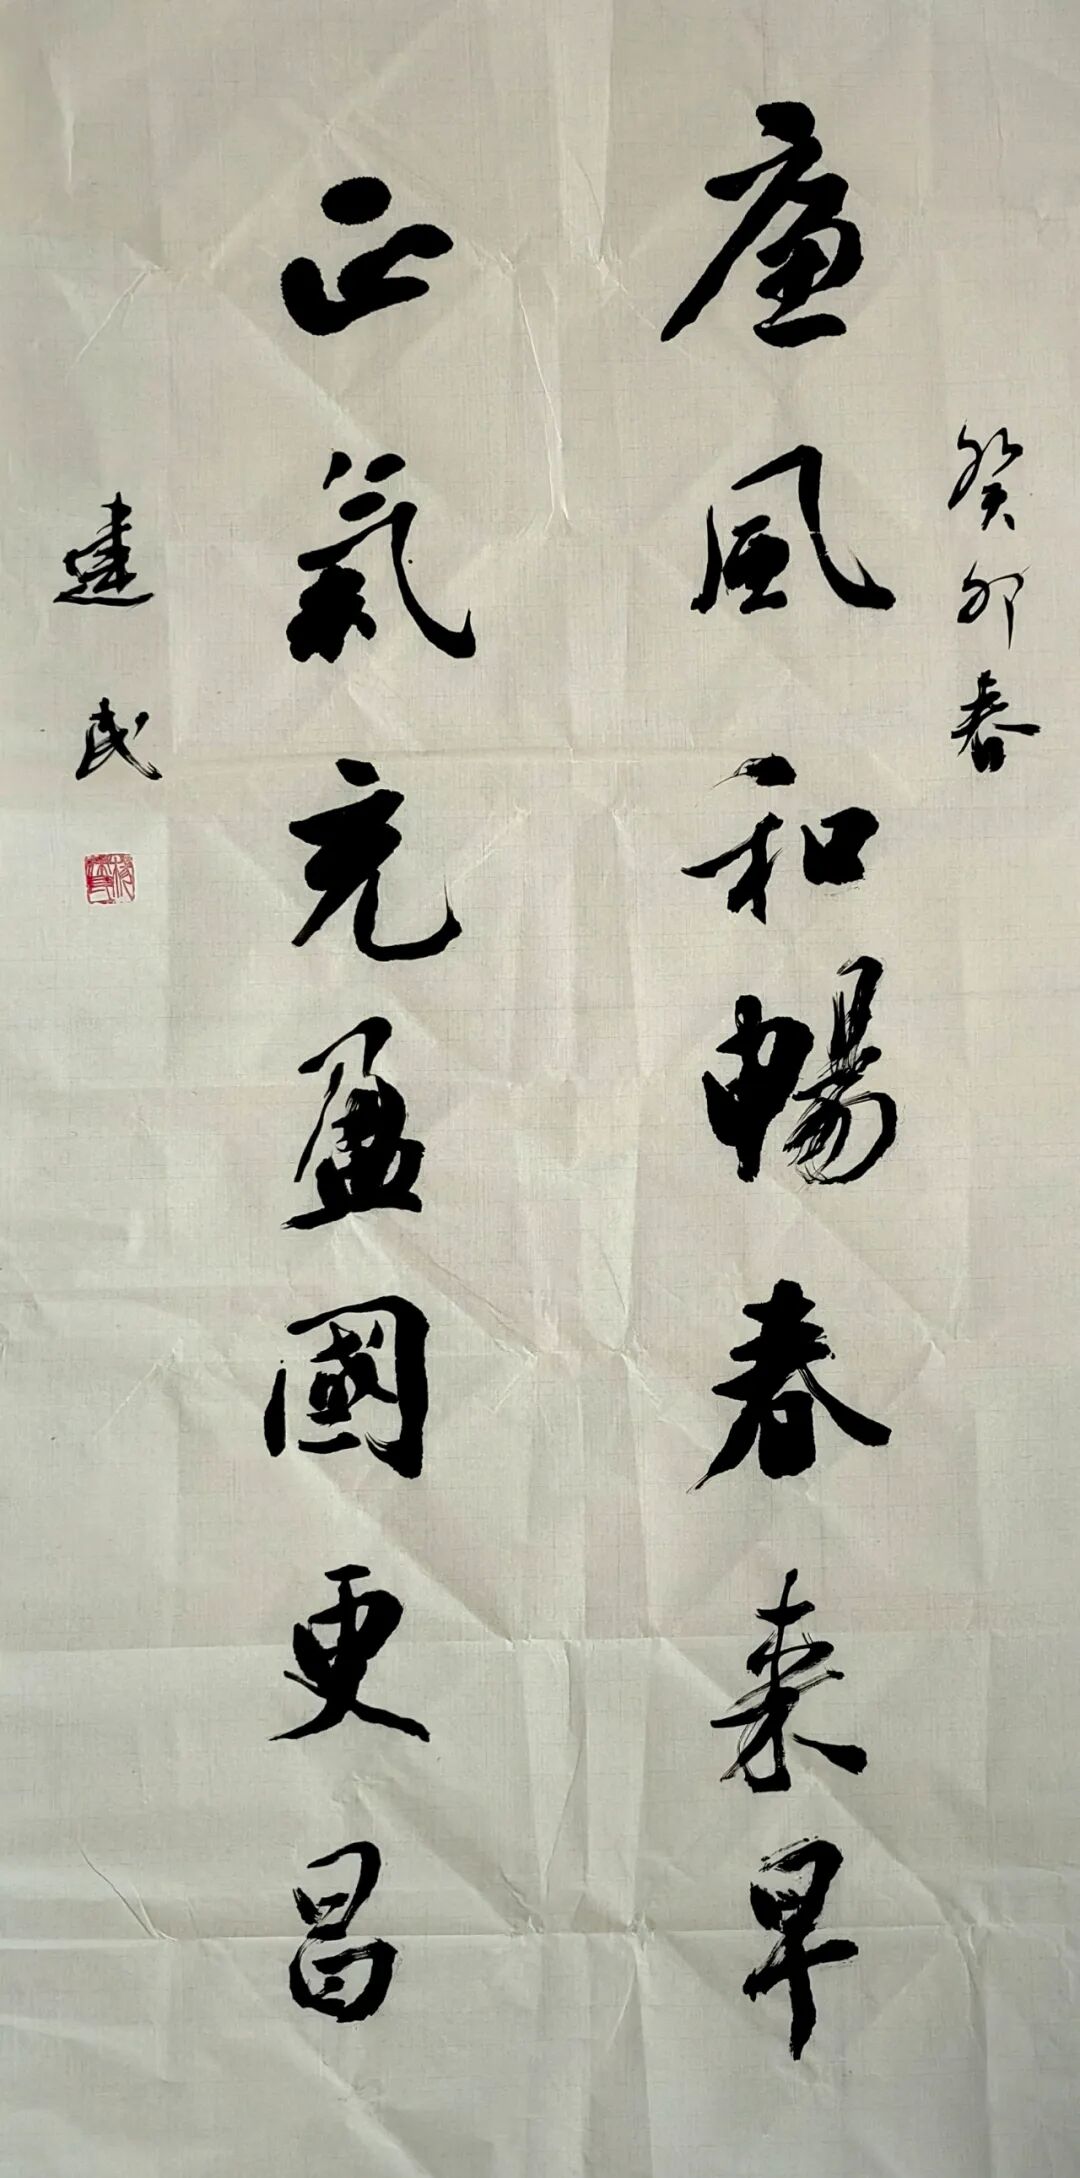 癸卯春
廉風和暢春來早
正氣充盈國更昌
建民